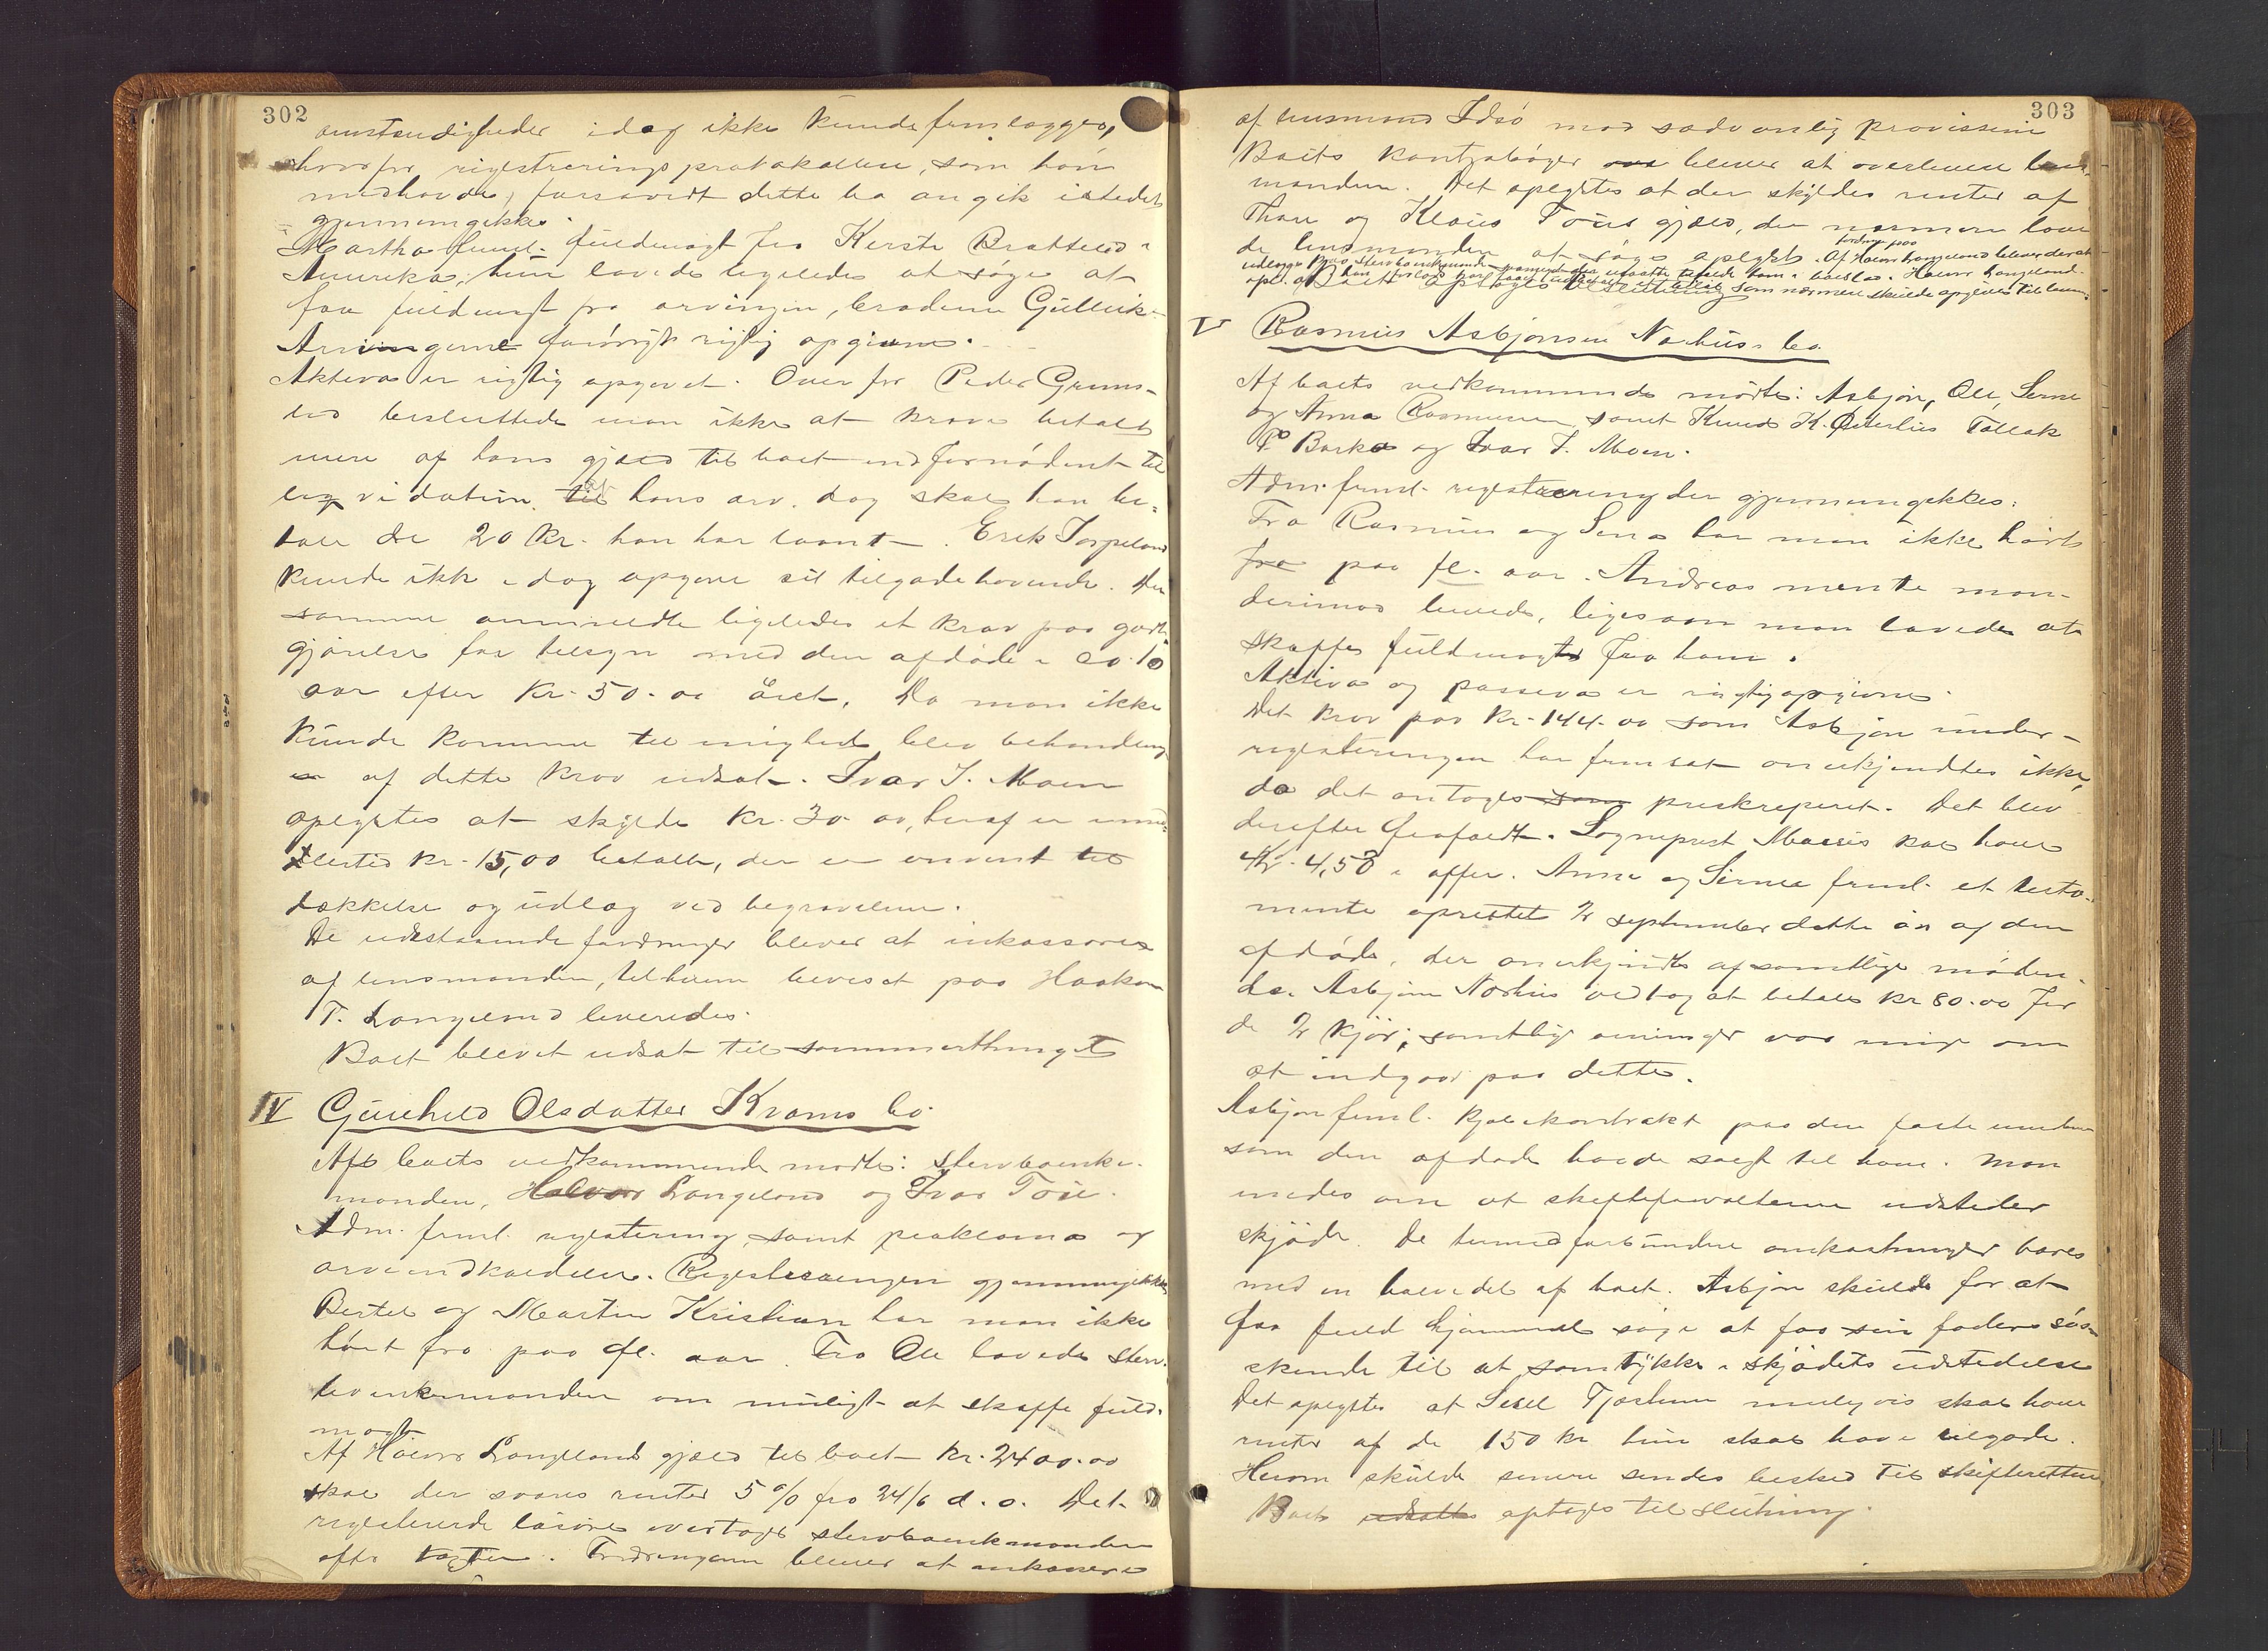 302
omstændigheder idag ikke kunde fremlægges,
hvorfor registreringsprotokollen, som han
medhavde, forsavidt dette bo angik istedet
gjennemgikkes.
Martha freml. fuldmagt fra Kerste Bratteli i
Amerika; hun lovede ligeledes at søge at
faa fuldmagt fra arvingen, broderen Gullik.
Arvingerne forøvrigt rigtig opgivne.
Aktiva er rigtig opgivet. Over for Peder Grims-
lid besluttede man ikke at kræve betalt
mere af hans gjæld til boet end fornødent til
liqvidation af hans arv. dog skal han be-
tale de 20 kr. han har laant. Erik Torpeland
kunde ikke idag opgive sit tilgodehavende. Den
samme anmeldte ligeledes et krav paa godt-
gjørelse for tilsyn med den afdøde i ca. 10
aar efter kr. 50.00 året. Da man ikke
kunde komme til enighed blev behandling-
en af dette krav udsat. Ivar I. Moen
oplystes at skylde kr. 30.00, heraf er imid-
lertid kr. 15,00 betalt, der er anvent til
dækkelse og udlæg ved begravelsen.
De udestaaende fordringer bliver at inkassere
af lensmanden, til hvem beviset paa Haakon
T. Langeland leveredes.
Boet blev udsat til sommerthinget
IV Gunhild Olsdatter Kvams bo.
Af boets vedkommende mødte: stervboenke-
manden, Halvor Langeland og Ivar Toie.
Adm. freml. registrering, samt proklama og
arveindkaldelse. Registreringen gjennemgikkes
Bertel og Martin Kristian har man ikke
hørt fra paa fl. aar. Fra Ole lovede sterv-
boenkemanden om muligt at skaffe fuld-
magt.
Af Halvor Langelands gjæld til boet kr. 2400.00
skal der svares renter 5 % fra 24/6 d. a. Det
registrerede løsøre overtages stervboenkemanden
efter taxten. Fordringerne bliver at inkassere
303
af lensmand Idsø mod sædvanlig provission
Boets kontrabøger bliver at overlevere lens-
manden. Det oplystes at der skyldes renter af
Thore og Klaus Toies gjæld, den nærmere love-
de lensmanden at søge oplyst. Af Halvor Langelands fordring paa
udlægges
Boet optoges til slutning som nærmere skulde opgives til
V Rasmus Asbjønsen Norhus bo.
Af boets vedkommende mødte: Asbjøn, Ole, Serine
og Anna Rasmussen, samt Knud K. Østerhus Tollak
P. Barka og Ivar I. Moen.
Adm. freml. registrering der gjennemgikkes.
Fra Rasmus og Sena har man ikke hørt
fra paa fl. aar. Andreas mente man
derimod levede, ligesom man lovede at
skaffe fuldmagt fra ham.
Aktiva og passiva er rigtig opgivne.
Det krav paa kr. 144.00 som Asbjøn under
registreringen har fremsat anerkjendtes ikke,
da det antoges som preskreperet. Det blev
derefter frafaldt. Sogneprest Massis skal have
kr. 4,58 i offer. Anna og Serine freml. et testa-
mente oprettet september dette år af den
afdøde, der anerkjendtes af samtlige møden-
de. Asbjøn Norhus vedtog at betale kr 80.00 for
de 2 kjør; samtlige arvinger var enige om
at indgaa paa dette.
Asbjøn freml. kjøbekontrakt paa den faste eiendom
som den afdøde havde solgt til ham. Man
enedes om at skifteforvalteren udsteder
skjøde. De hermed forbundne omkostninger bæres
med en halvedel af boet. Asbjøn skulde for at
faa fuld hjemmel søge at faa sin faders søs-
skende til at samtykke i skjødets udstedelse
Det oplystes at Sesel Tjørhom muligvis skal have
renter af de 150 kr hun skal have tilgode.
Herom skulde senere sendes besked til skifteretten
Boet udsattes optoges til slutning.